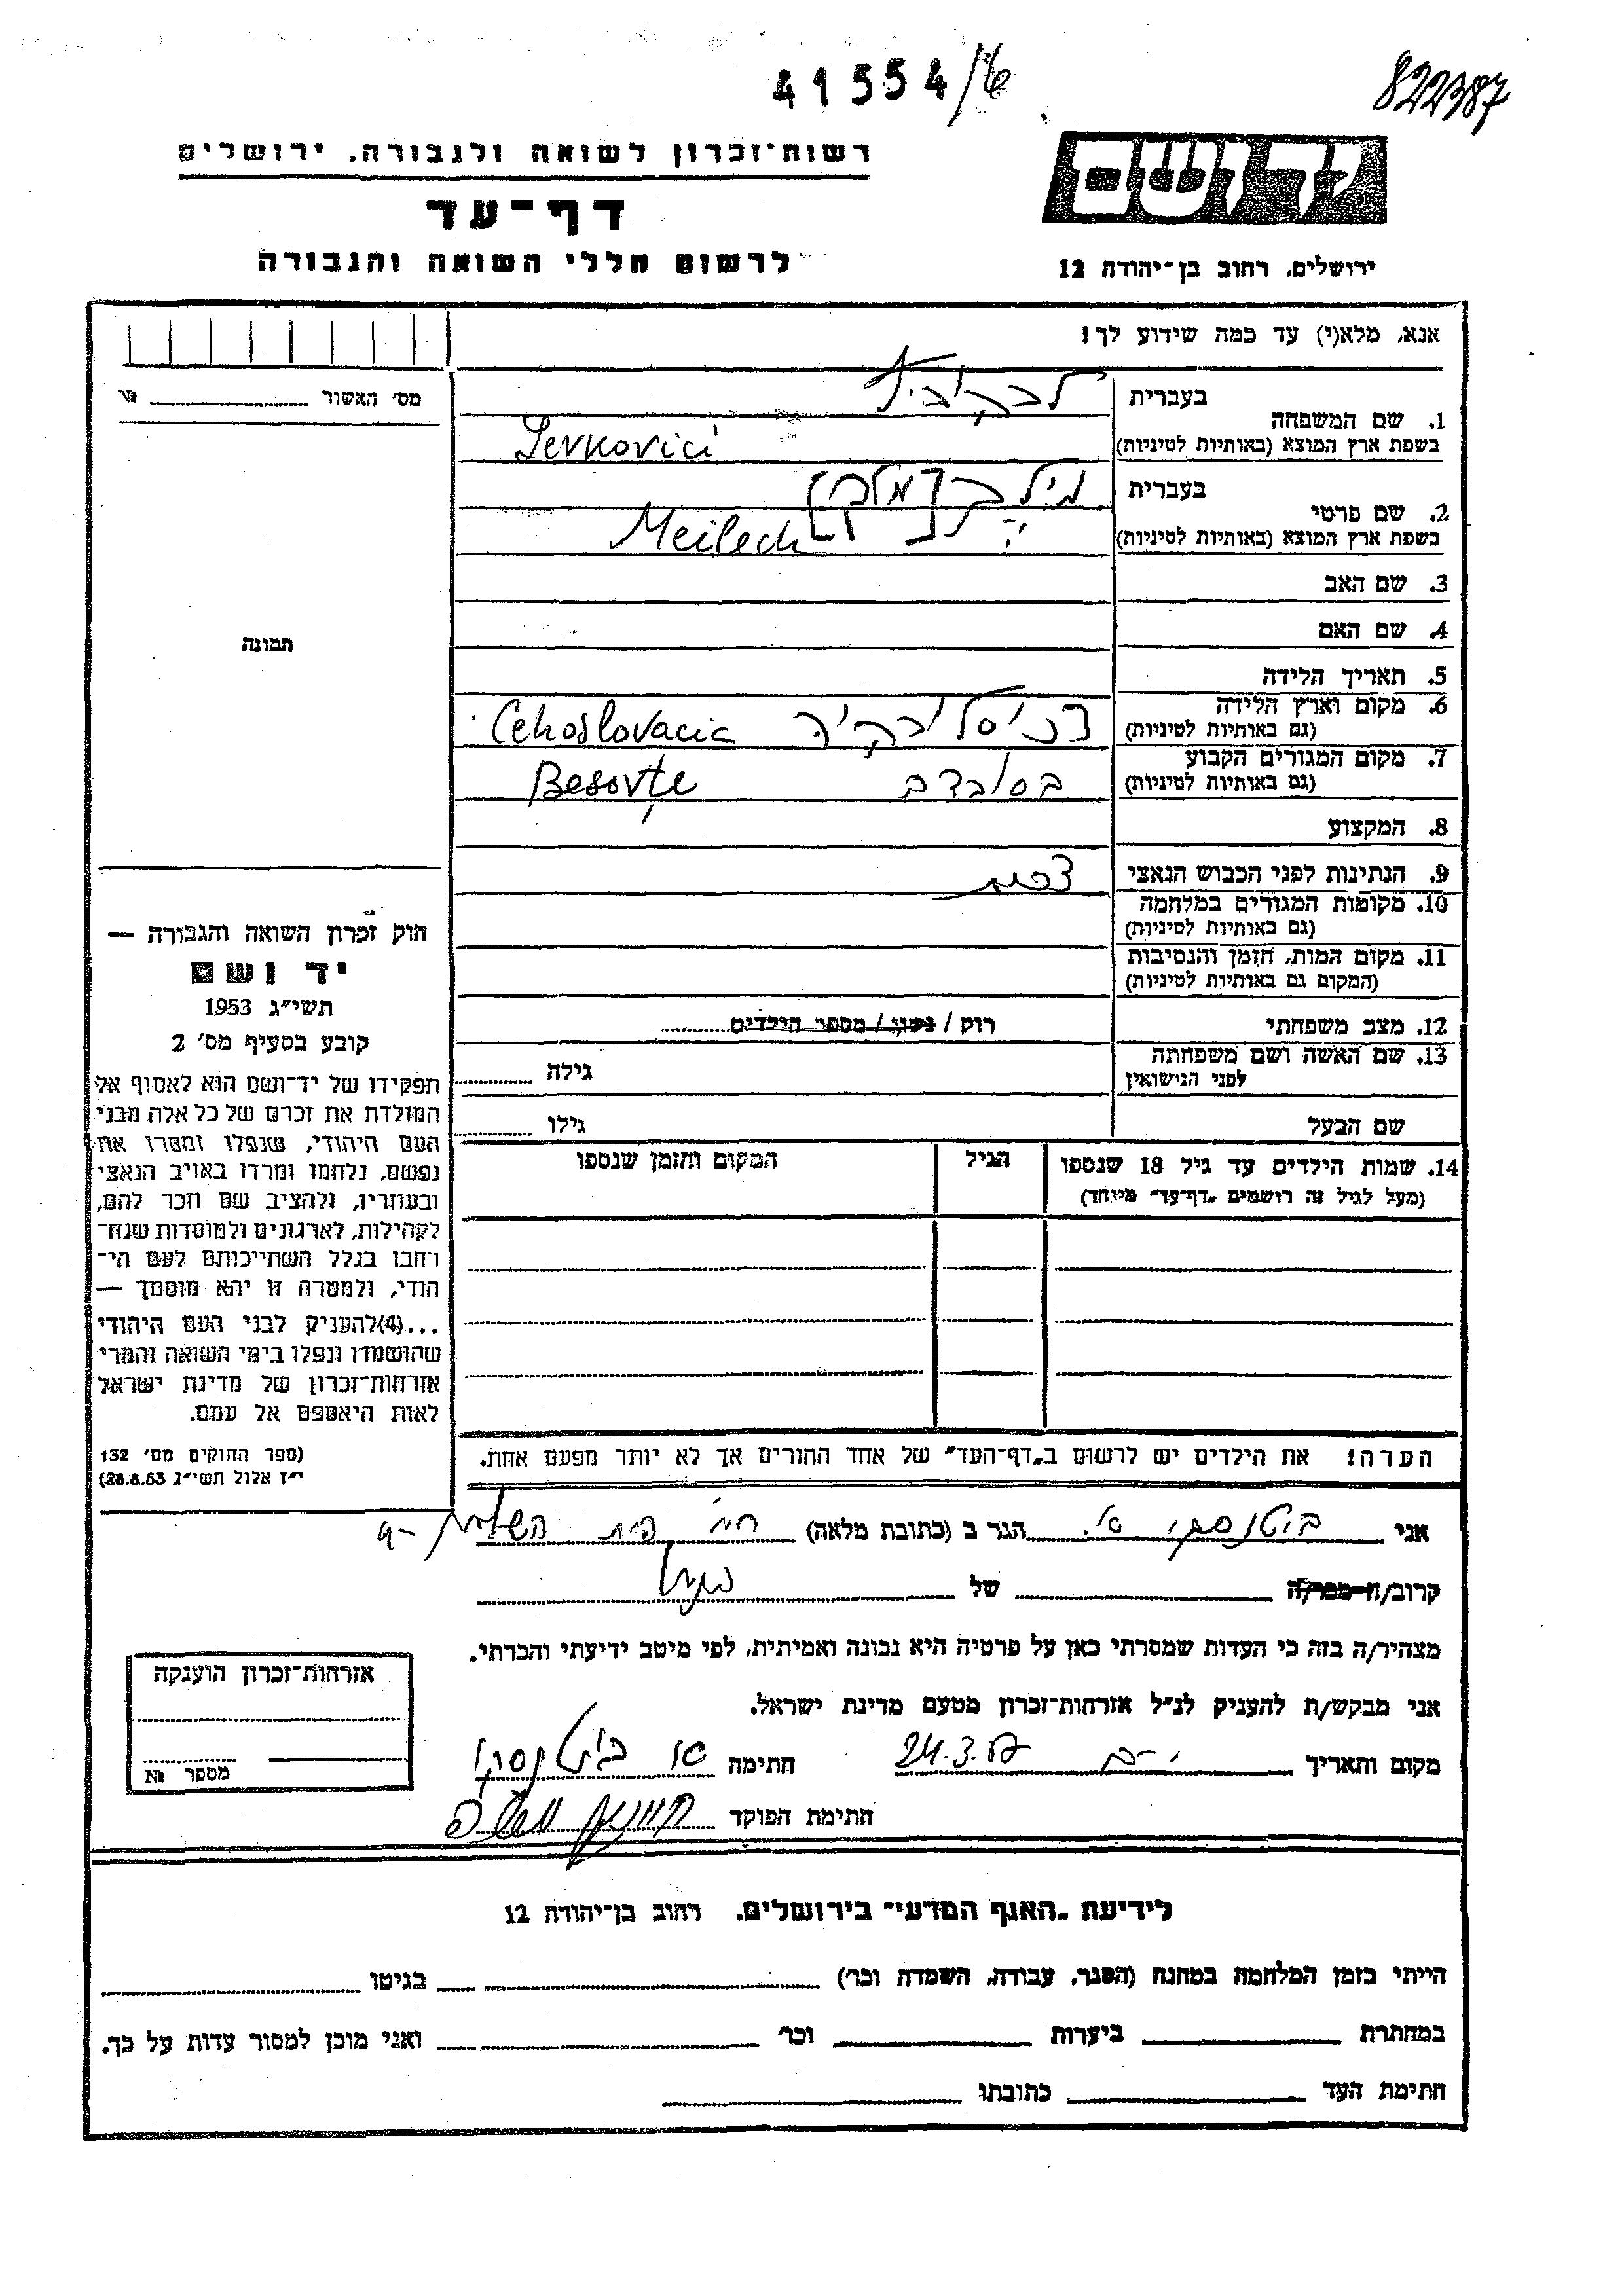 41554/6
822387
רשות־זכרון לשואה ולגבורה, ירושלים
יד ושם
דף־עד
לרשום חללי השואה והגבורה
ירושלים, רחוב בן־יהודה 12
אנא, מלא(י) עד כמה שידוע לך!
מס׳ האשור № 
1. שם המשפחה
בעברית לבקוביץ
בשפת ארץ המוצא (באותיות לטיניות) Levkovici
2. שם פרטי
בעברית מילך [מלך]
בשפת ארץ המוצא (באותיות לטיניות) Meilech
3. שם האב
4. שם האם
תמונה
5. תאריך הלידה
6. מקום וארץ הלידה
(גם באותיות לטיניות) Cehoslovacia
7. מקום המגורים הקבוע
(גם באותיות לטיניות) Besovţe
8. המקצוע
9. הנתינות לפני הכבוש הנאצי
10. מקומות המגורים במלחמה
(גם באותיות לטיניות)
11. מקום המות, הזמן והנסיבות
(המקום גם באותיות לטיניות)
12. מצב משפחתי רוק / נשוי / מספר הילדים
13. שם האשה ושם משפחתה
לפני הנישואין גילה
שם הבעל גילו
14. שמות הילדים עד גיל 18 שנספו
(מעל לגיל זה רושמים „דף־עד״ מיוחד)
הגיל
המקום והזמן שנספו
חוק זכרון השואה והגבורה —
יד ושם
תשי״ג 1953
קובע בסעיף מס׳ 2
תפקידו של יד־ושם הוא לאסוף אל
המולדת את זכרם של כל אלה מבני
העם היהודי, שנפלו ומסרו את
נפשם, נלחמו ומרדו באויב הנאצי
ובעוזריו, ולהציב שם וזכר להם,
לקהילות, לארגונים ולמוסדות שנח־
רחבו בגלל השתייכותם לעם הי־
הודי, ולמטרה זו יהא מוסמך —
...(4)להעניק לבני העם היהודי
שהושמדו ונפלו בימי השואה והמרי
אזרחות־זכרון של מדינת ישראל
לאות היאספם אל עמם.
(ספר החוקים מס׳ 132
י״ז אלול תשי״ג 28.8.53)
הערה! את הילדים יש לרשום ב„דף־העד״ של אחד ההורים אך לא יותר מפעם אחת.
אני הגר ב (כתובת מלאה)
קרוב/ה מכר/ה של
מצהיר/ה בזה כי העדות שמסרתי כאן על פרטיה היא נכונה ואמיתית, לפי מיטב ידיעתי והכרתי.
אני מבקש/ת להעניק לנ״ל אזרחות־זכרון מטעם מדינת ישראל.
מקום ותאריך 24.3.57 חתימה
חתימת הפוקד
אזרחות־זכרון הוענקה
מספר №
לידיעת „האגף המדעי״ בירושלים, רחוב בן־יהודה 12
הייתי בזמן המלחמה במחנה (הסגר, עבודה, השמדה וכו׳) בגיטו
במחתרת ביערות וכו׳ ואני מוכן למסור עדות על כך.
חתימת העד כתובתו